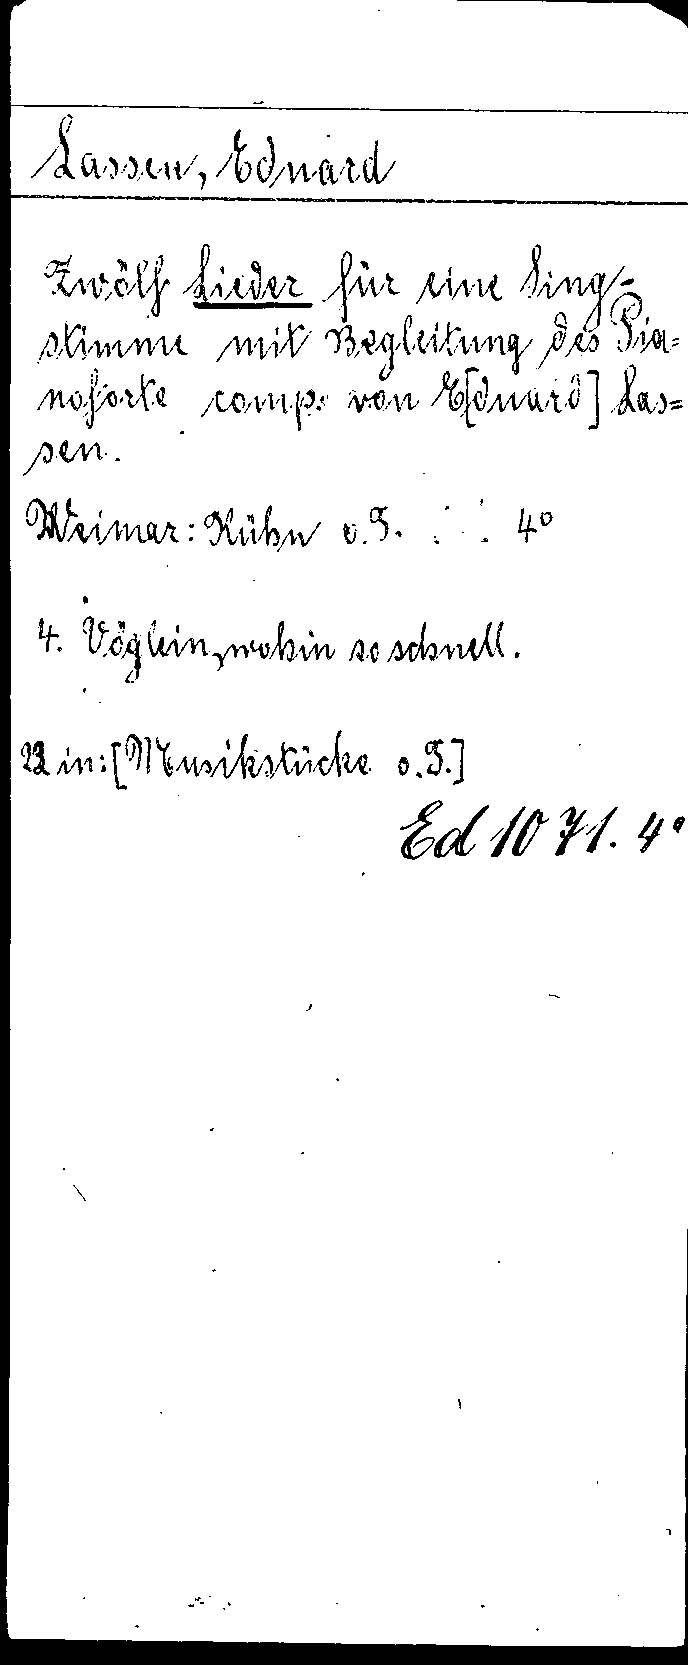 Lassen, Eduard
Zwölf Lieder für eine Sing-
stimme mit Begleitung des Pia-
noforte comp. von E[duard] Las-
sen.
Weimar: Kühn o. J. 4°
4. Vöglein, wohin so schnell.
in: [Musikstücke o. J.]
Ed 1071. 4°